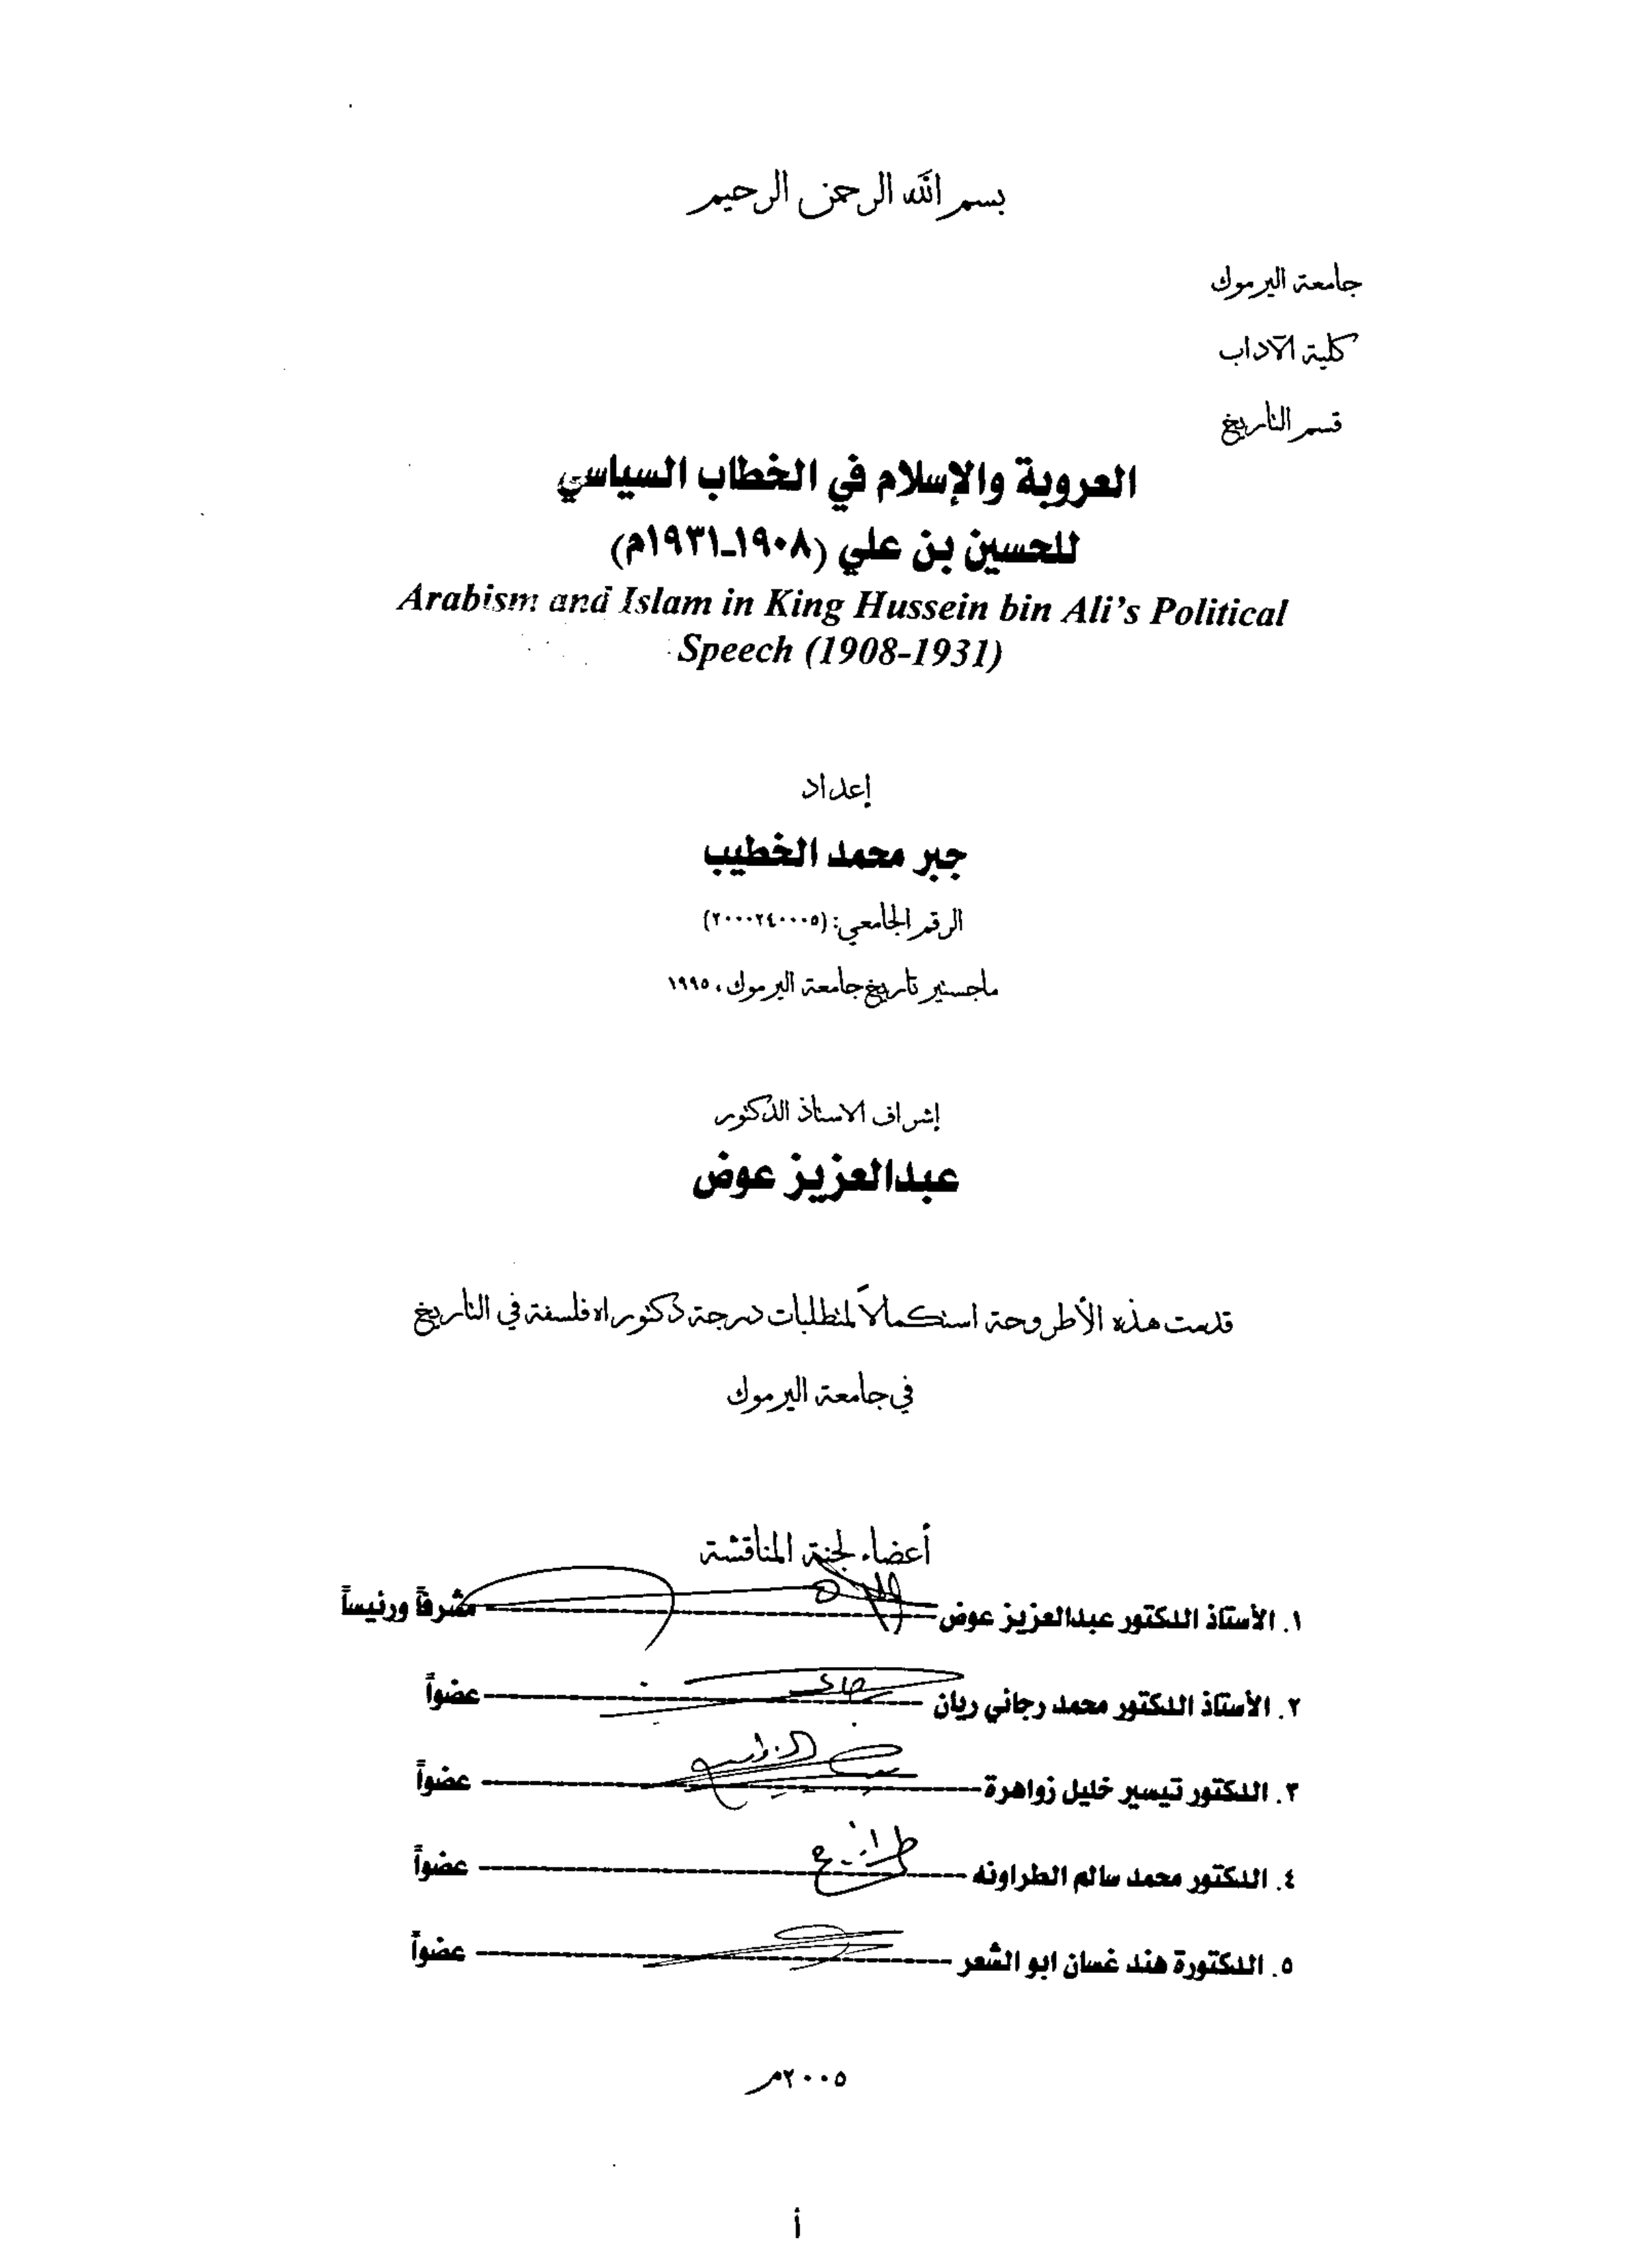 بسم الله الرحمن الرحيم
جامعة اليرموك
كلية الآداب
قسم التاريخ
العروبة والإسلام في الخطاب السياسي
للحسين بن علي (١٩٠٨-١٩٣١م)
Arabism and Islam in King Hussein bin Ali's Political
Speech (1908-1931)
إعداد
جبر محمد الخطيب
الرقم الجامعي: (٢٠٠٠٢٤٠٠٠٥)
ماجستير تاريخ جامعة اليرموك، ١٩٩٥
إشراف الاستاذ الدكتور
عبدالعزيز عوض
قدمت هذه الأطروحة استكمالاً لمتطلبات درجة دكتوراه فلسفة في التاريخ
في جامعة اليرموك
أعضاء لجنة المناقشة
١. الأستاذ الدكتور عبدالعزيز عوض مشرفاً ورئيساً
٢. الأستاذ الدكتور محمد رجائي ريان عضواً
٣. الدكتور تيسير خليل زواهرة عضواً
٤. الدكتور محمد سالم الطراونه عضواً
٥. الدكتورة هند غسان ابو الشعر عضواً
٢٠٠٥م
أ